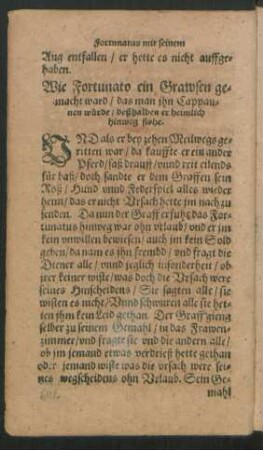 Fortunatus mit seinem
Aug entfallen / er hette es nicht auffge-
haben.
Wie Fortunato ein Grawsen ge-
macht ward / das man jhn Cappau-
nen würde / deßhalben er heimlich
hinweg flohe.
VND als er bey zehen Meilwegs ge-
ritten war / da kauffte er ein ander
Pferd / saß drauff / vnnd reit eilends
für baß / doch sandte er dem Graffen sein
Roß / Hund vnnd Federspiel alles wieder
heim / das er nicht Vrsach hette jm nach zu
senden. Da nun der Graff erfuhr das For-
tunatus hinweg war ohn vrlaub / vnd er jm
kein vnwillen bewiesen / auch jm kein Sold
geben / da nam es jhn frembd / vnd fragt die
Diener alle / vnnd jeglich insonderheit / ob
jrer keiner wiste / was doch die Vrsach were
seines Hinscheidens / Sie sagten alle / sie
wisten es nicht / Vnnd schwuren alle sie het-
ten jhm kein Leid gethan. Der Graff gieng
selber zu seinem Gemahl / in das Frawen-
zimmer / vnd fragte sie vnd die andern alle /
ob jm jemand etwas verdrieß hette gethan
oder jemand wiste was die vrsach were sei-
nes wegscheidens ohn Vrlaub. Sein Ge-
mahl